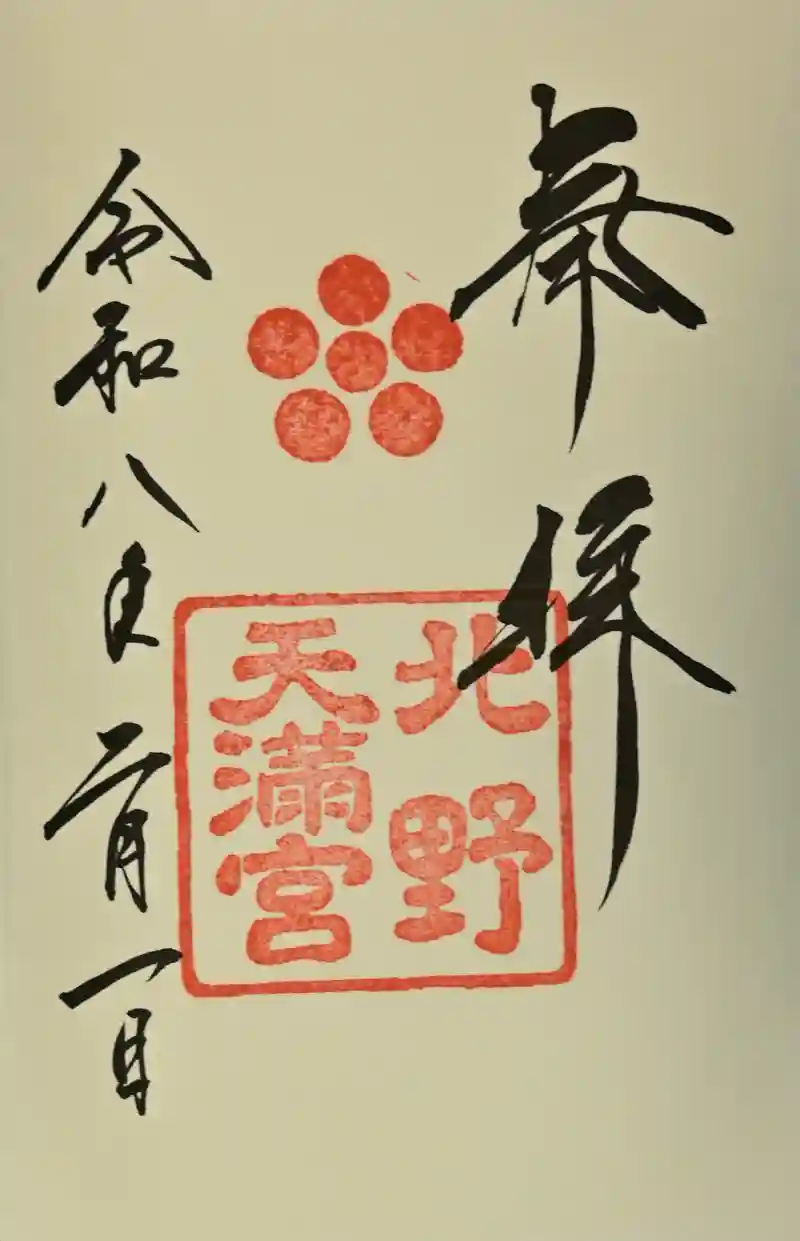 奉拝
北野
天満宮
令和八年二月一日